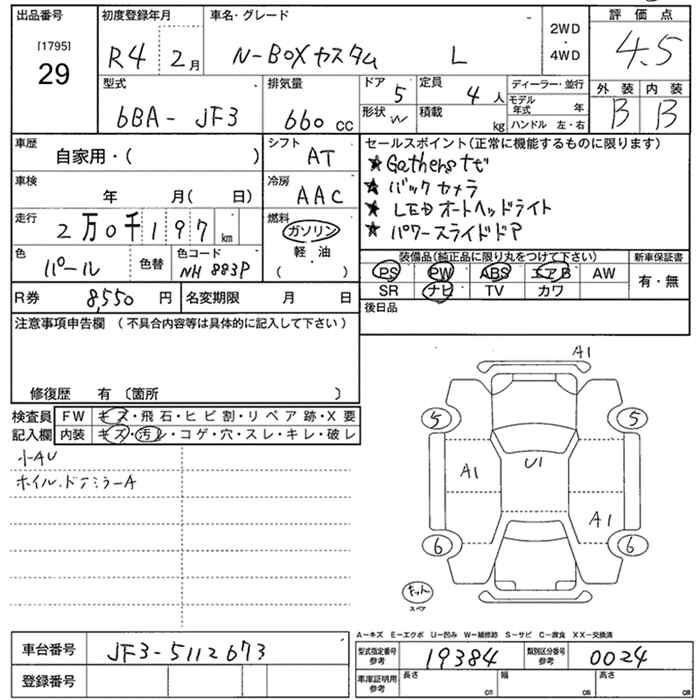 出品番号 初度登録年月 車名・グレード 評価点
[1795]
29 R4 2月 N-BOXカスタム L 2WD・4WD 4.5
型式 排気量 ドア 5 定員 4人 ディーラー・並行 外装 内装
6BA- JF3 660 cc 形状 W 積載 kg モデル年式 年 ハンドル 左・右 B B
車歴 シフト セールスポイント(正常に機能するものに限ります)
自家用・( ) AT ★Gathersナビ
車検 冷房 ★バックカメラ
年 月( 日) AAC ★LEDオートヘッドライト
走行 燃料 ★パワースライドドア
2万0千197km ガソリン
色 色替 色コード 軽油 装備品(純正品に限り丸をつけて下さい) 新車保証書
パール NH883P ( ) PS PW ABS エアB AW 有・無
SR ナビ TV カワ
R券 8,550円 名変期限 月 日 後日品
注意事項申告欄 (不具合内容等は具体的に記入して下さい)
修復歴 有 〔箇所 〕
検査員 FW キズ・飛石・ヒビ割・リペア跡・X要
記入欄 内装 キズ・汚レ・コゲ・穴・スレ・キレ・破レ
小AU
ホイル.ドアミラーA
A1
5 5
A1 U1
A1
6 6
キット
スペア
A-キズ E-エクボ U-凹み W-補修跡 S-サビ C-腐食 XX-交換済
車台番号 JF3-5112673 型式指定番号参考 19384 類別区分番号参考 0024
登録番号 車庫証明用参考 長さ cm 幅 cm 高さ cm